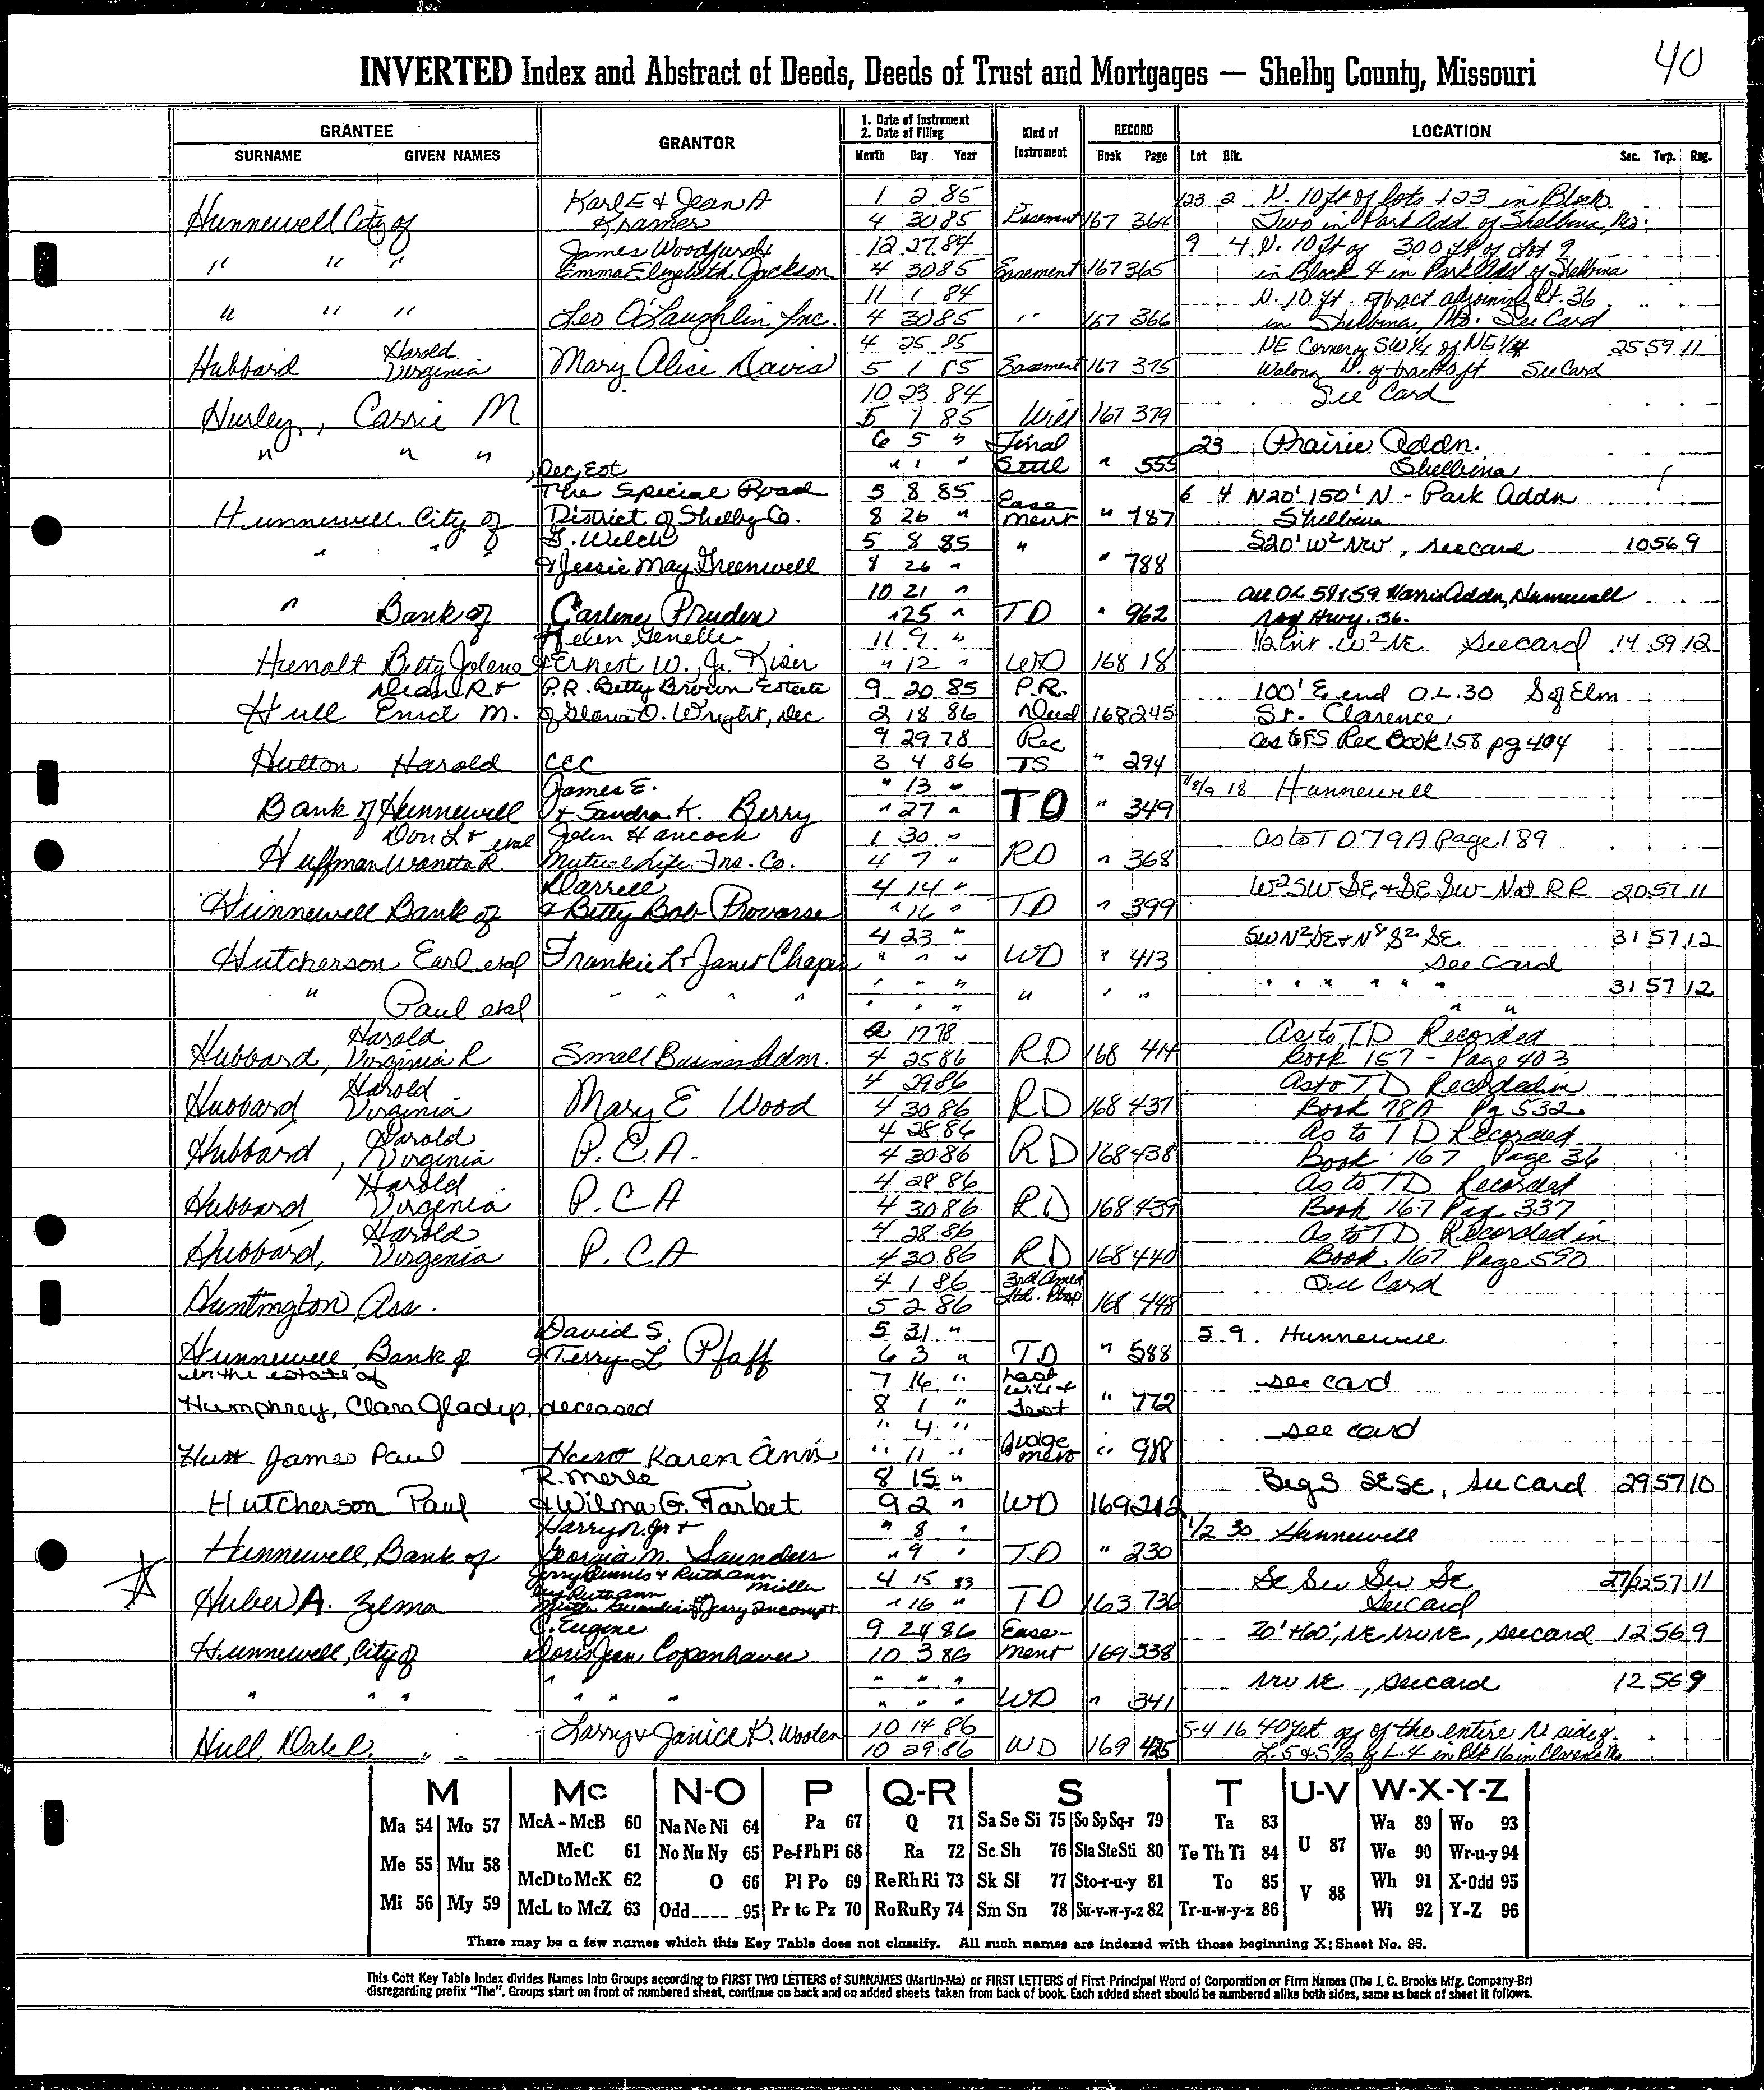 40
INVERTED Index and Abstract of Deeds, Deeds of Trust and Mortgages — Shelby County, Missouri
GRANTEE
SURNAME GIVEN NAMES
GRANTOR
1. Date of Instrument
2. Date of Filing
Month Day Year
Kind of
Instrument
RECORD
Book Page
LOCATION
Lot Blk. Sec. Twp. Rng.
Karl E & Jean A 1 2 85 123 2 N. 10 ft of lots 123 in Block
Hunnewell City of Kramer 4 30 85 Easement 167 364 Two in Park Add. of Shelbina, Mo.
James Woodfurd 12 27 84 9 4 N. 10 ft of 300 ft of Lot 9
" " " Emma Elizabeth Jackson 4 30 85 Easement 167 365 in Block 4 in Park Add of Shelbina
11 1 84 N. 10 ft. tract adjoining Rt. 36
" " " Leo O'Laughlin Inc. 4 30 85 " 167 366 in Shelbina, Mo. See Card
Harold 4 25 85 NE Corner of SW 1/4 of NE 1/4 25 59 11
Hubbard Virginia Mary Alice Davis 5 1 85 Easement 167 375 See Card
10 23 84 See Card
Hurley, Carrie M 5 1 85 Will 167 379
6 5 " Final 23 Prairie Addn.
" " " , Dec, Est " 1 " Settl " 555 Shelbina
The Special Road 5 8 85 Ease 6 4 N20' 150' N - Park Addn
Hunnewell City of District of Shelby Co. 8 26 " ment " 787 Shelbina
" " " G. Welch 5 8 85 " S20' W² NW, see card 10 56 9
& Jessie May Greenwell 8 26 " " 788
10 21 " all OL 58 & 59 Harris Addn, Hunnewell
" Bank of Carlene Pruden " 25 " TD " 962 N of Hwy. 36.
Helen Genelle 11 9 " 1/2 int. W² NE See card 14 59 12
Hunolt Betty Jolene & Ernest W., Jr. Kiser " 12 " WD 168 18
Dean R & P.R. Betty Brown Estate 9 20 85 P.R. 100' E end O.L. 30 S of Elm
Hull Enid M. of Gloria O. Wright, Dec 2 18 86 Deed 168 245 St. Clarence
9 29 78 Rec as to FS Rec Book 158 pg 404
Hutton Harold CCC 3 4 86 TS " 294
James E. " 13 " 7/8/9 18 Hunnewell
Bank of Hunnewell & Sandra K. Berry " 27 " TD " 349
Don L & etal John Hancock 1 30 " as to TD 79A Page 189
Huffman Waneta R Mutual Life Ins. Co. 4 7 " RD " 368
Darrell 4 14 " W² SW SE & SE SW N of RR 20 57 11
Hunnewell Bank of & Betty Bob Provanse " 16 " TD " 399
4 23 " SW N² SE & N⁸ S² SE 31 57 12
Hutcherson Earl etal Frankie L & Janet Chapin " " " WD " 413 See Card
" Paul etal " " " " " " " " " " " " " " " " 31 57 12
Harold 2 17 78 As to TD Recorded
Hubbard, Virginia R Small Business Adm. 4 25 86 RD 168 414 Book 157 - Page 403
Harold 4 29 86 As to TD Recorded in
Hubbard Virginia Mary E Wood 4 30 86 RD 168 437 Book 78A Pg 532
Harold 4 28 86 As to TD Recorded
Hubbard, Virginia P.C.A. 4 30 86 RD 168 438 Book 167 Page 36
Harold 4 28 86 As to TD Recorded
Hubbard Virginia P.C A 4 30 86 RD 168 439 Book 167 Page 337
Harold 4 28 86 As to TD Recorded in
Hubbard, Virginia P.C A 4 30 86 RD 168 440 Book 167 Page 590
4 1 86 3rd Amed See Card
Huntington Ass. 5 2 86 Ltd. Ptnp 168 448
David S. 5 31 " 5 9 Hunnewell
Hunnewell, Bank of & Terry L Pfaff 6 3 " TD " 588
in the estate of 7 16 " Last Will & see card
Humphrey, Clara Gladys, deceased 8 1 " Test " 772
" 4 " Judge see card
James Paul Karen Ann " 11 " ment " 988
R. Merle 8 15 " Beg S SESE, see card 29 57 10
Hutcherson Paul & Wilma G. Tarbet 9 2 " WD 169 212
Harry N. Jr & " 8 " 1/2 30 Hunnewell
Hunnewell, Bank of Georgia M. Saunders " 9 " TD " 230
Jerry Dennis & Ruth Ann Miller 4 15 83 SE SW SW SE 27/22 57 11
Huber, A. Zelma by Ruth Ann Miller Guardian of Jerry Incompt. " 16 " TD 163 736 See Card
C. Eugene 9 24 86 Ease- 20' & 60', NE NW NE, see card 12 56 9
Hunnewell, City of Doris Jean Copenhaver 10 3 86 ment 169 338
" " " " " " " " " " " " WD " 341 NW NE, see card 12 56 9
Larry & Janice K. Wooten 10 14 86 5-4 16 40 feet off of the entire N side of
Hull, Dale R. 10 29 86 WD 169 425 L. 5 & S 1/2 of L. 4 in Blk 16 in Clarence Mo
M Mc N-O P Q-R S T U-V W-X-Y-Z
Ma 54 Mo 57 McA - McB 60 Na Ne Ni 64 Pa 67 Q 71 Sa Se Si 75 So Sp Sq-r 79 Ta 83 Wa 89 Wo 93
Me 55 Mu 58 McC 61 No Nu Ny 65 Pe-f Ph Pi 68 Ra 72 Sc Sh 76 Sta Ste Sti 80 Te Th Ti 84 U 87 We 90 Wr-u-y 94
McD to McK 62 O 66 Pl Po 69 Re Rh Ri 73 Sk Sl 77 Sto-r-u-y 81 To 85 V 88 Wh 91 X-Odd 95
Mi 56 My 59 McL to McZ 63 Odd____ -95 Pr to Pz 70 Ro Ru Ry 74 Sm Sn 78 Su-v-w-y-z 82 Tr-u-w-y-z 86 Wi 92 Y-Z 96
There may be a few names which this Key Table does not classify. All such names are indexed with those beginning X; Sheet No. 95.
This Cott Key Table Index divides Names Into Groups according to FIRST TWO LETTERS of SURNAMES (Martin-Ma) or FIRST LETTERS of First Principal Word of Corporation or Firm Names (The J. C. Brooks Mfg. Company-Br)
disregarding prefix "The". Groups start on front of numbered sheet, continue on back and on added sheets taken from back of book. Each added sheet should be numbered alike both sides, same as back of sheet it follows.